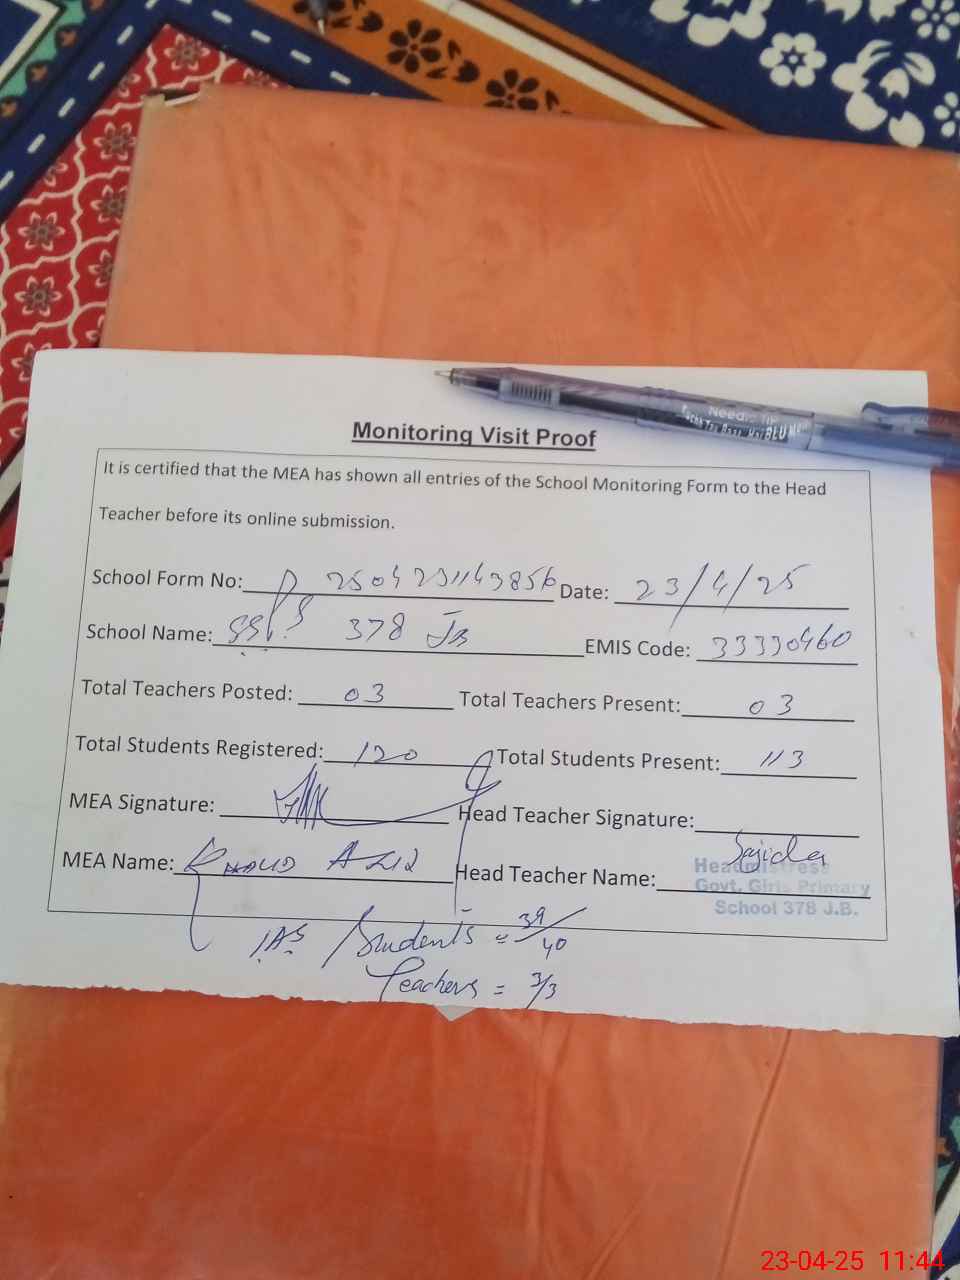 Needle Tip
BLU
Monitoring Visit Proof
It is certified that the MEA has shown all entries of the School Monitoring Form to the Head
Teacher before its online submission.
School Form No: P 2504231143856 Date: 23/4/25
School Name: GGPS 378 JB EMIS Code: 33330460
Total Teachers Posted: 03 Total Teachers Present: 03
Total Students Registered: 120 Total Students Present: 113
MEA Signature: Head Teacher Signature:
Sajida
MEA Name: Khalid Aziz Head Teacher Name:
Headmistress
Govt. Girls Primary
School 378 J.B.
Students = 39/40
Teachers = 3/3
23-04-25 11:44